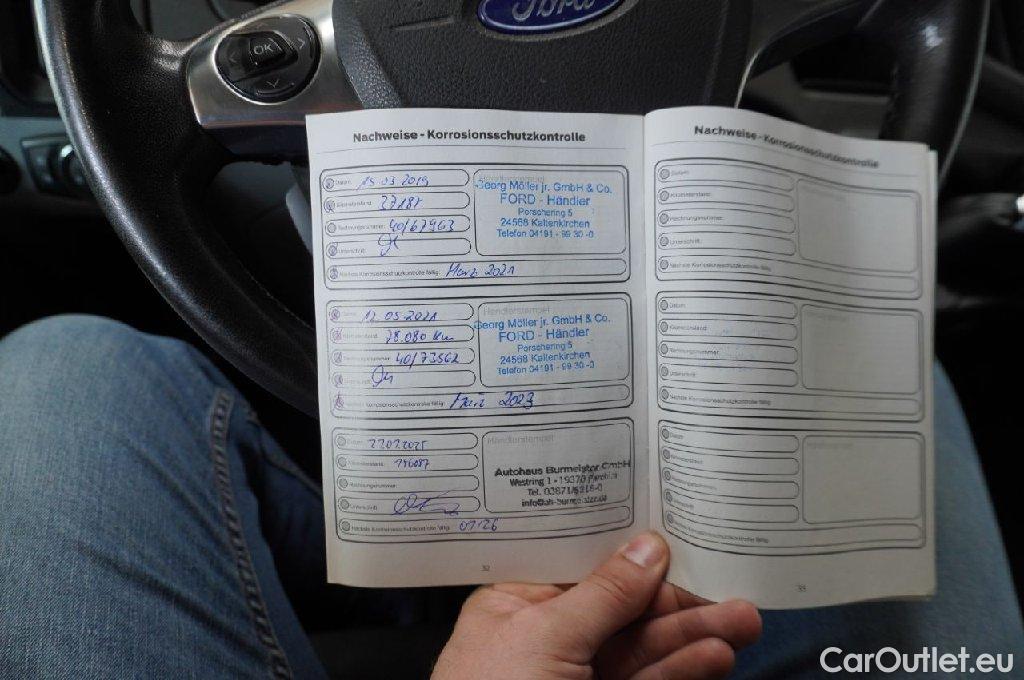 Ford
OK
Nachweise - Korrosionsschutzkontrolle
Datum: 15.03.2019
Kilometerstand:
Rechnungsnummer: 40/67963
Unterschrift:
Nächste Korrosionsschutzkontrolle fällig: März 2021
Händlerstempel
Georg Möller jr. GmbH & Co.
FORD - Händler
Porschering 5
24568 Kaltenkirchen
Telefon 04191 - 99 30 -0
Datum: 12.05.2021
Kilometerstand: 78.080 Km
Rechnungsnummer: 40/73562
Unterschrift:
Nächste Korrosionsschutzkontrolle fällig: März 2023
Händlerstempel
Georg Möller jr. GmbH & Co.
FORD - Händler
Porschering 5
24568 Kaltenkirchen
Telefon 04191 - 99 30 -0
Datum:
Kilometerstand:
Rechnungsnummer:
Unterschrift:
Nächste Korrosionsschutzkontrolle fällig: 07/26
Händlerstempel
Autohaus Burmeister GmbH
Westring 1 - 19370 Parchim
Tel. 03871/6218-0
32
Nachweise - Korrosionsschutzkontrolle
Datum:
Kilometerstand:
Rechnungsnummer:
Unterschrift:
Nächste Korrosionsschutzkontrolle fällig:
Datum:
Kilometerstand:
Rechnungsnummer:
Unterschrift:
Nächste Korrosionsschutzkontrolle fällig:
Datum:
Kilometerstand:
Rechnungsnummer:
Unterschrift:
Nächste Korrosionsschutzkontrolle fällig:
33
CarOutlet.eu